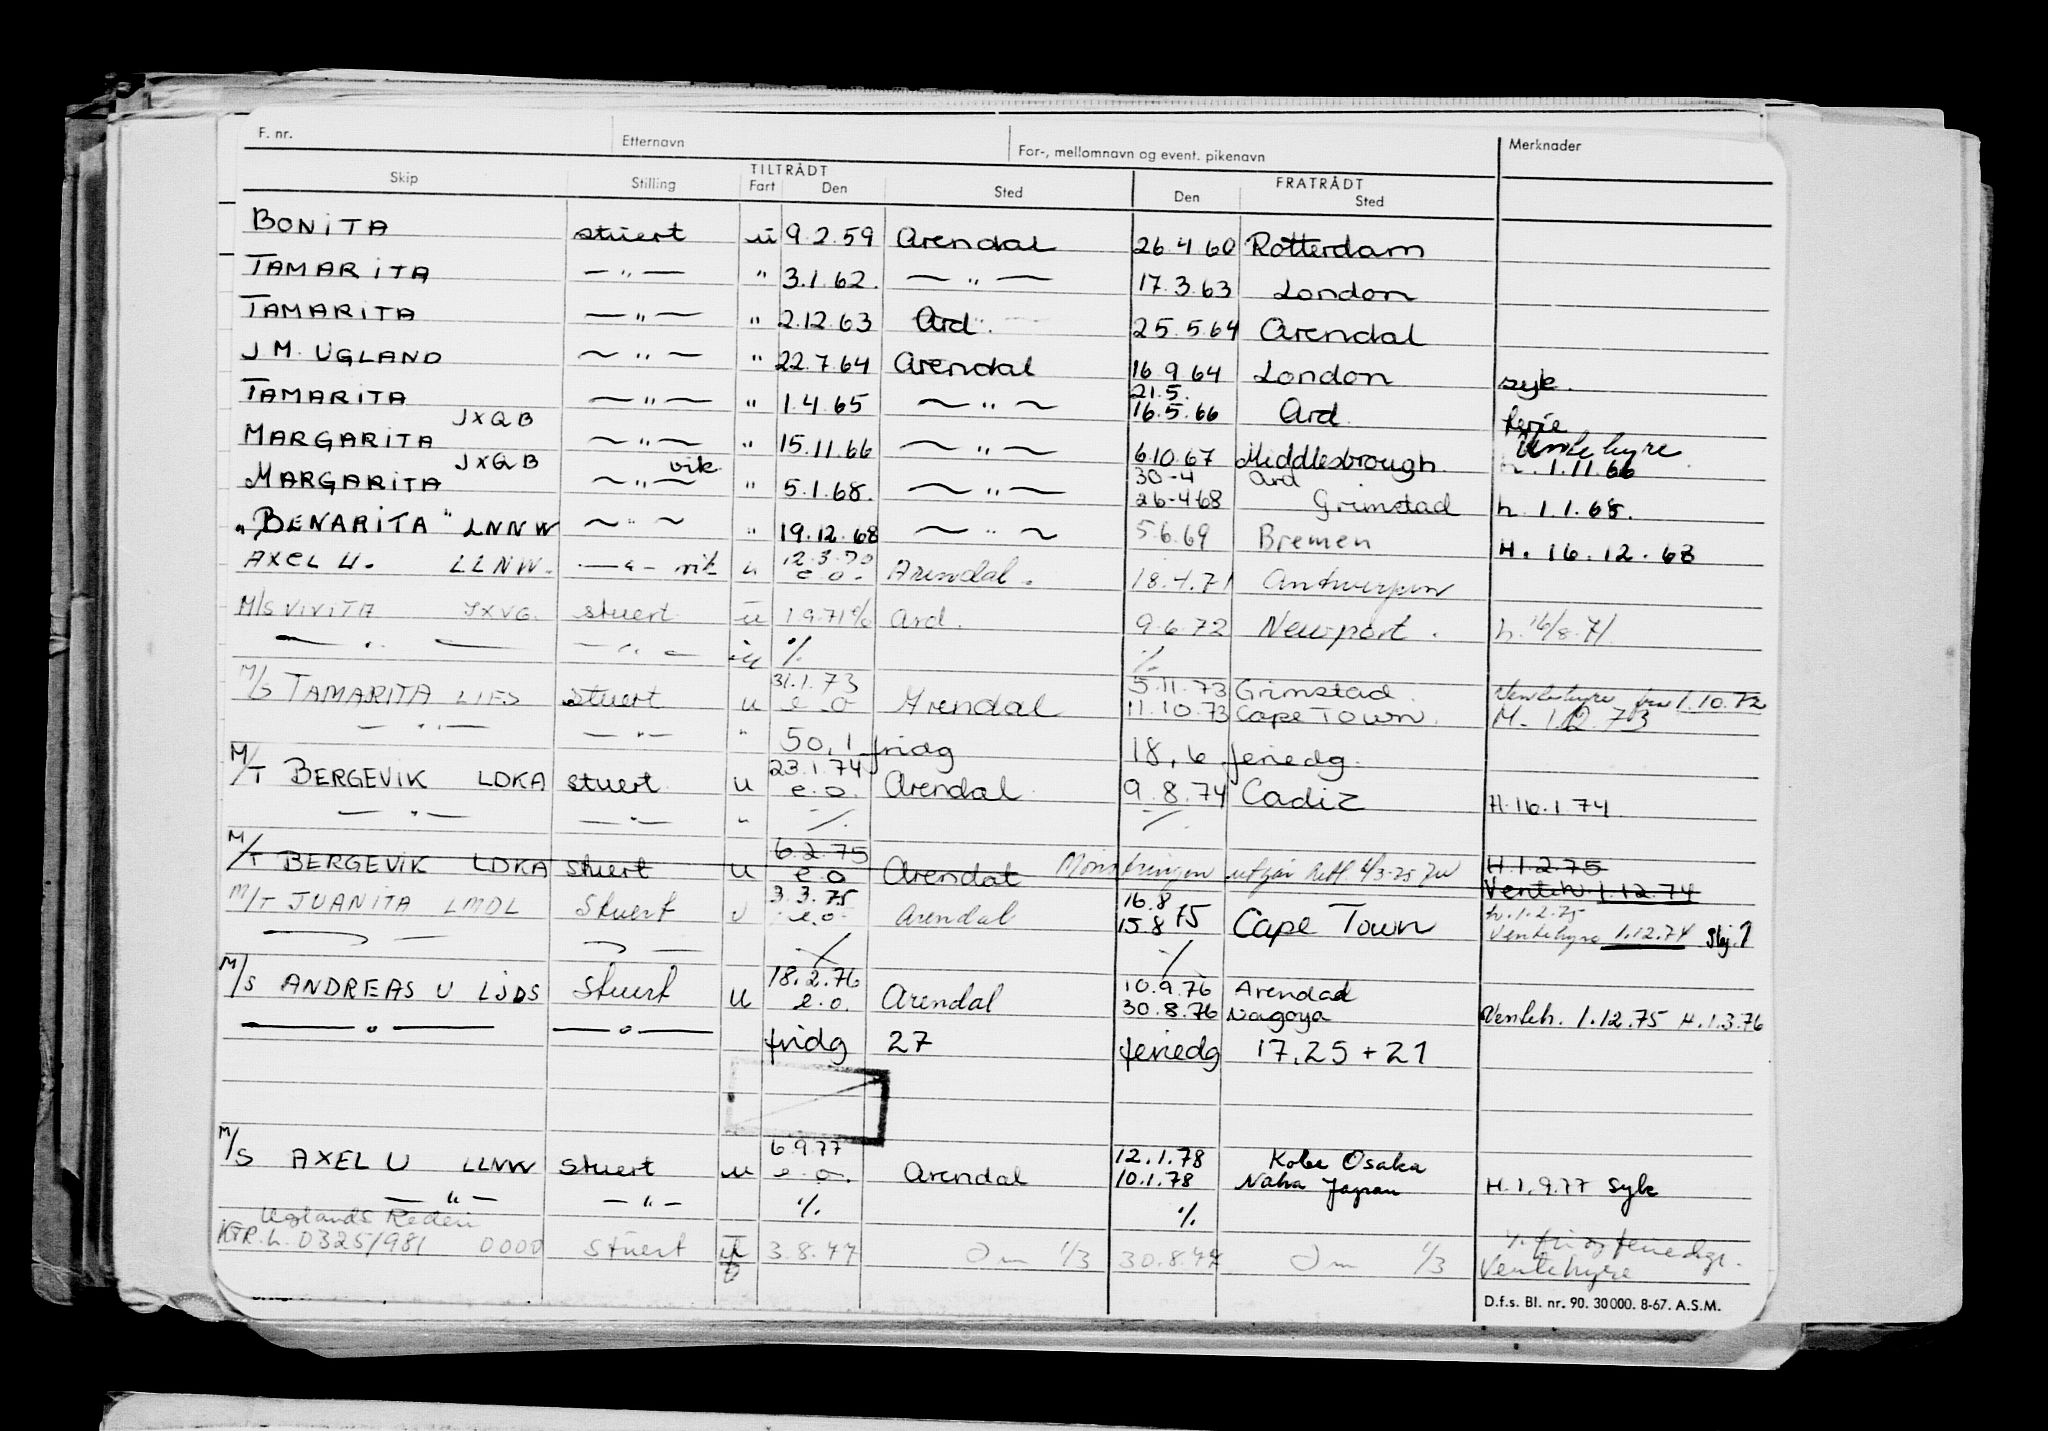 F. nr. Etternavn For-, mellomnavn og event. pikenavn Merknader
TILTRÅDT FRATRÅDT
Skip Stilling Fart Den Sted Den Sted
BONITA stuert u 9.2.59 Arendal 26.4.60 Rotterdam
TAMARITA — " — " 3.1.62. — " — 17.3.63 London
TAMARITA — " — " 2.12.63 Ard. 25.5.64 Arendal
J M. UGLAND — " — " 22.7.64 Arendal 16.9.64 London syk.
21.5.
TAMARITA — " — " 1.4.65 — " — 16.5.66 Ard. ferie
JXQB Ventehyre
MARGARITA — " — " 15.11.66 — " — 6.10.67 Middlesbrough. h. 1.11.66
JXQB vik. 30-4 Ard
MARGARITA — " — " 5.1.68. — " — 26-4 68 Grimstad h. 1.1.68.
"BENARITA" LNNW — " — " 19.12.68 — " — 5.6.69 Bremen H. 16.12.68
12.3.70
AXEL U. LLNW. — " — vik u e.o. Arendal. 18.4.71 Antwerpen
M/S VIVITA JXVG. stuert u 1.9.71 % Ard. 9.6.72 Newport. h. 16/8.71
— " — — " — u % %
31.1.73 5.11.73 Grimstad. Ventehyre fra 1.10.72
M/S TAMARITA LIFS stuert u e.o Arendal 11.10.73 Cape Town. M. 1.2.73
— " — — " — " 50,1 fridg 18,6 feriedg.
23.1.74
M/T BERGEVIK LDKA stuert u e.o. Arendal 9.8.74 Cadiz H. 16.1.74
— " — — " — " % %
6.2.75 H.1.2.75
M/T BERGEVIK LDKA stuert u e.o Arendal Mønstringen utgår 4/3-75 Venteh. 1.12.74
3.3.75 16.8 h.1.2.75
M/T JUANITA LMDL Stuert u e.o. Arendal 15.8 75 Cape Town Ventehyre 1.12.74
% %
18.2.76 10.9.76 Arendal
M/S ANDREAS U LJDS Stuert u e.o. Arendal 30.8.76 Nagoya Venteh. 1.12.75 H.1.3.76
— " — — " — fridg 27 feriedg 17,25 + 21
6.9.77 12.1.78 Kobe Osaka
M/S AXEL U LLNW Stuert u e.o. Arendal 10.1.78 Naha Japan H.1.9.77 Syk
— " — — " — % %
Uglands Rederi fri og feriedgr.
KTR.L.0325/981 0000 Stuert u 3.8.77 1/3 30.8.77 1/3 Ventehyre
D.f.s. Bl. nr. 90. 30000. 8-67. A.S.M.